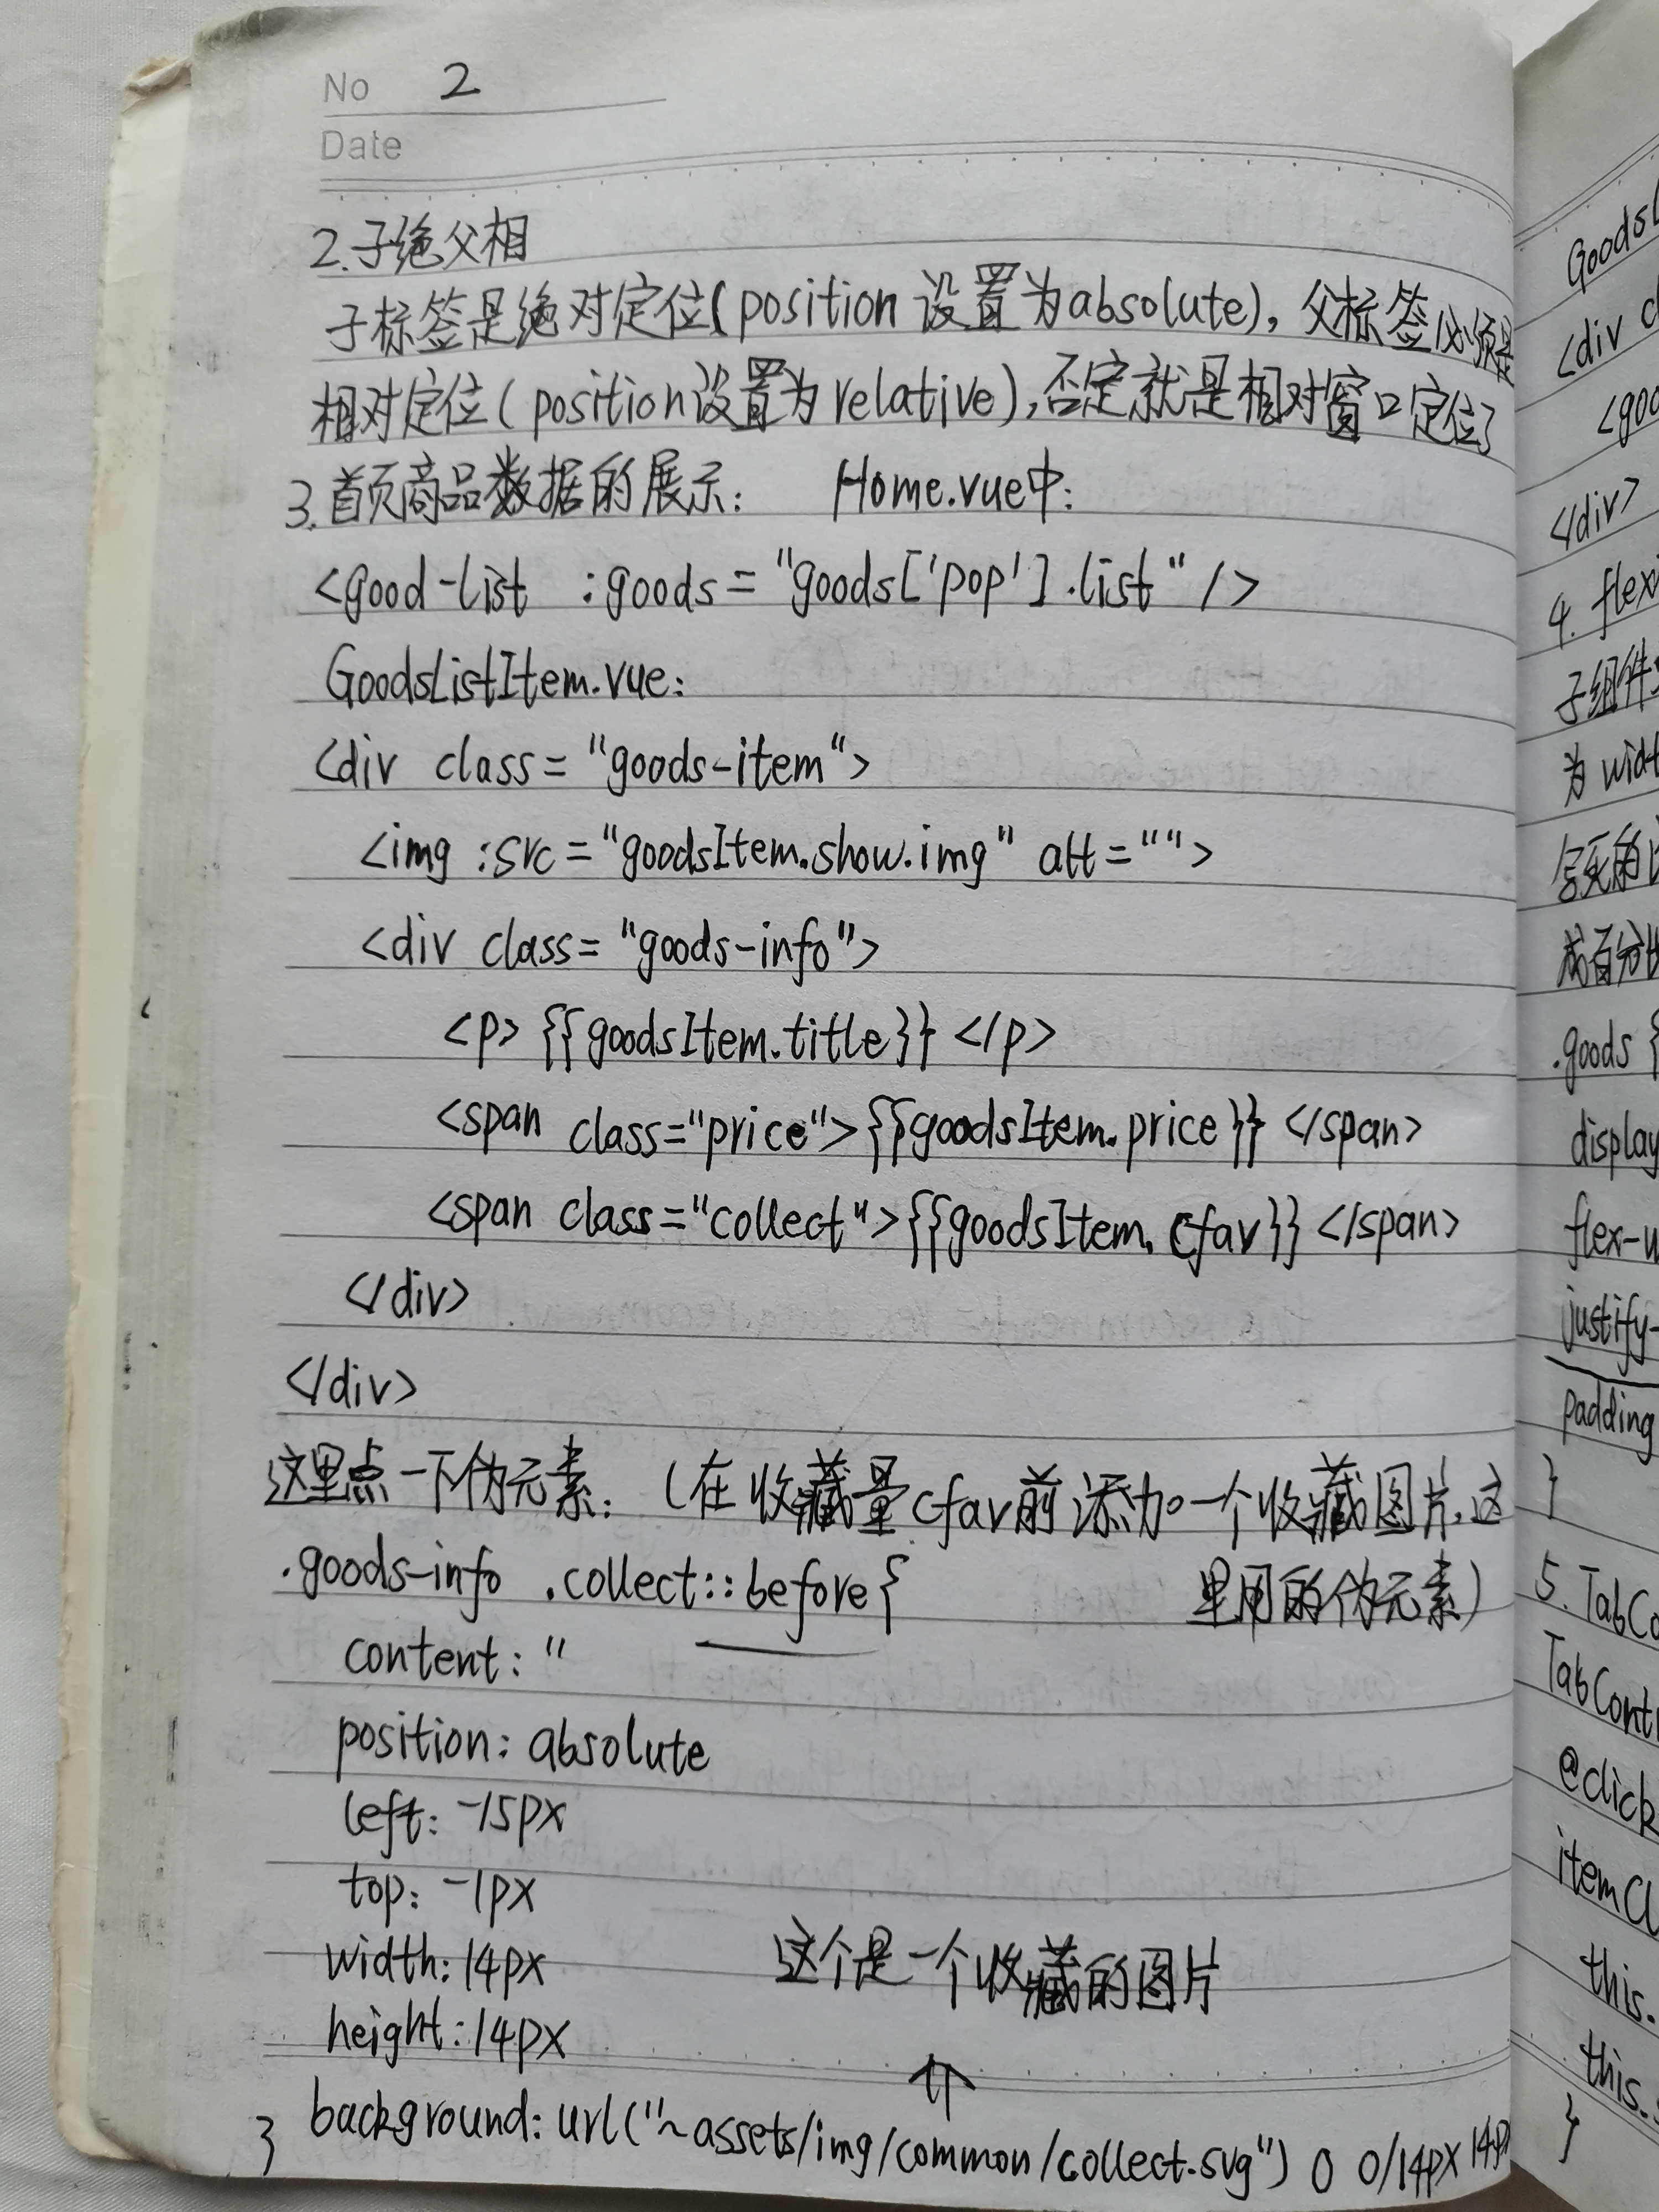 No 2
Date
2.子绝父相
子标签是绝对定位(position 设置为absolute), 父标签必须是
相对定位(position设置为relative),否定就是相对窗口定位了
3.首页商品数据的展示: Home.vue中:
<good-list :goods="goods['pop'].list" />
GoodsListItem.vue:
<div class="goods-item">
<img :src="goodsItem.show.img" alt="">
<div class="goods-info">
<p> {{goodsItem.title}} </p>
<span class="price">{{goodsItem.price}} </span>
<span class="collect">{{goodsItem.cfav}} </span>
</div>
</div>
这里点一下伪元素: (在收藏量cfav前添加一个收藏图片,这
.goods-info .collect::before{ 里用的伪元素)
content: ''
position: absolute
left: -15px
top: -1px
width: 14px 这个是一个收藏的图片
height: 14px
background: url("~assets/img/common/collect.svg") 0 0/14px 14px
}
GoodsL
<div c
<goo
</div>
4. flex
子组件
为 widt
成百分比
.goods {
display
flex-w
justify-
padding
}
5. TabCo
TabCont
@click
itemCl
this.
this.
}